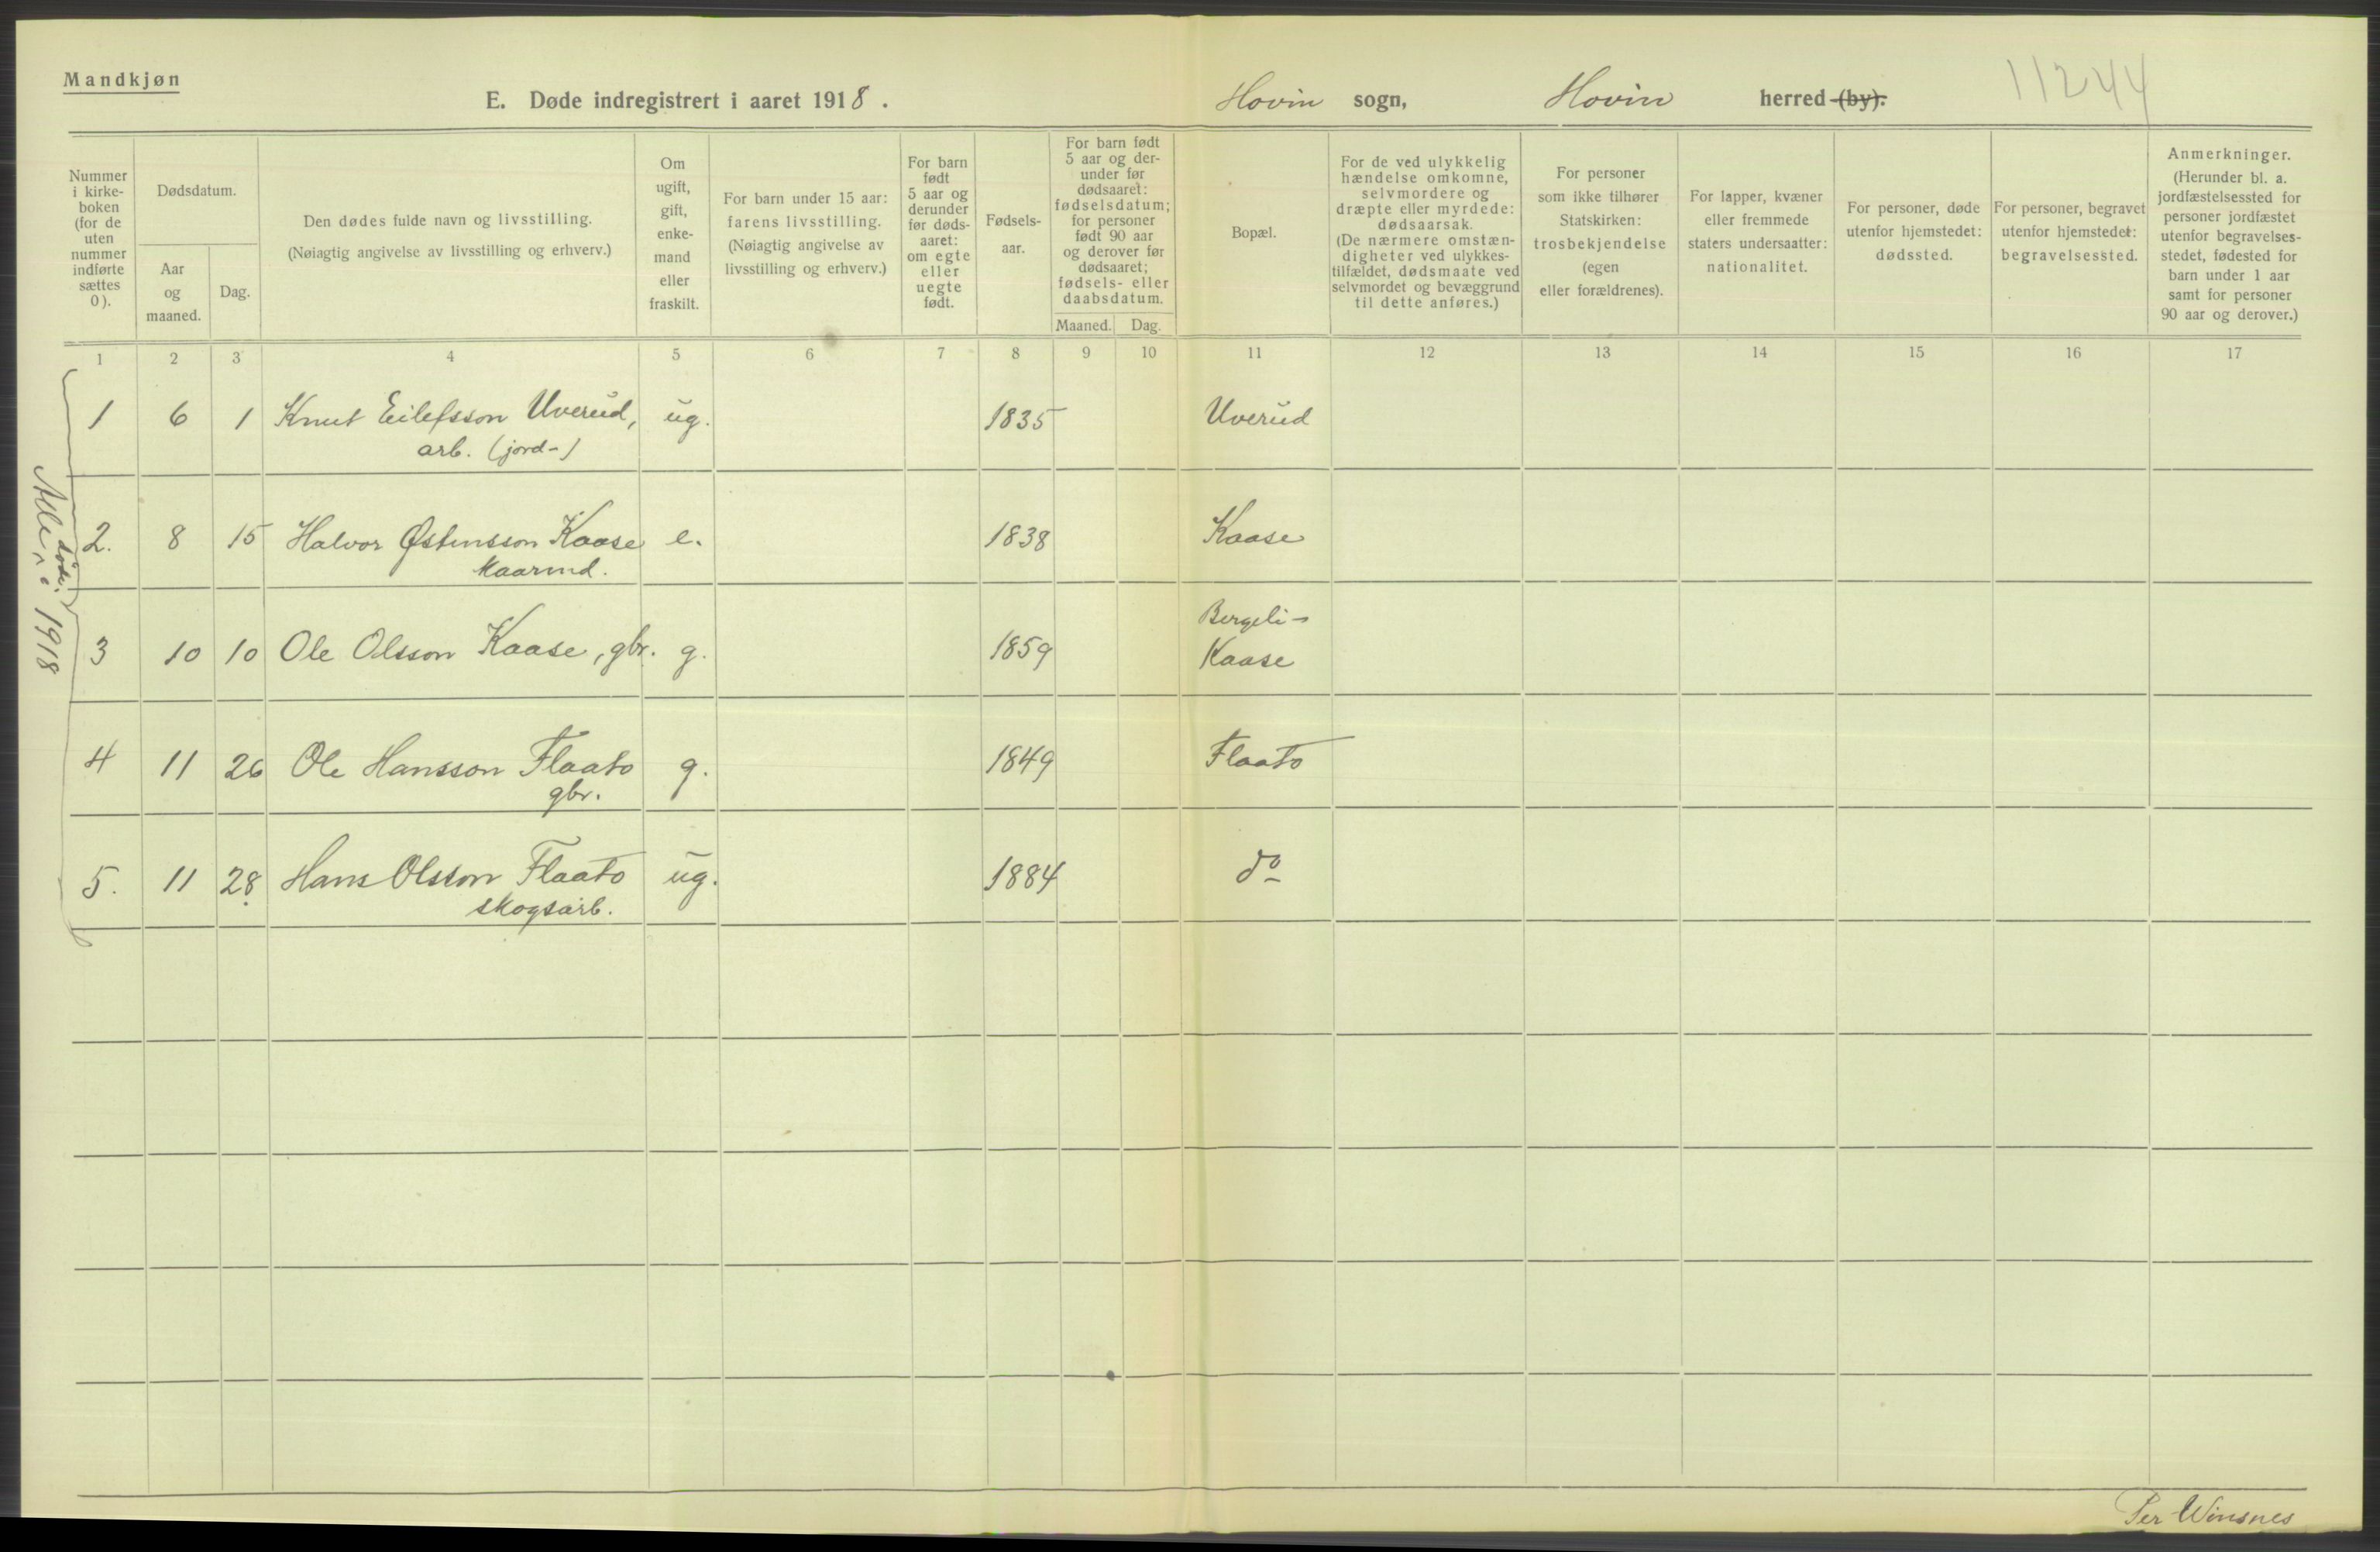 Mandkjøn
E. Døde indregistrert i aaret 1918.
Hovin sogn, Hovin herred (by).
11244
Nummer i kirke-boken (for de uten nummer indførte sættes 0).
Dødsdatum.
Aar og maaned.
Dag.
Den dødes fulde navn og livsstilling.
(Nøiagtig angivelse av livsstilling og erhverv.)
Om ugift, gift, enke-mand eller fraskilt.
For barn under 15 aar: farens livsstilling.
(Nøiagtig angivelse av livsstilling og erhverv.)
For barn født 5 aar og derunder før døds-aaret: om egte eller uegte født.
Fødsels-aar.
For barn født 5 aar og der-under før dødsaaret: fødselsdatum; for personer født 90 aar og derover før dødsaaret; fødsels- eller daabsdatum.
Maaned. Dag.
Bopæl.
For de ved ulykkelig hændelse omkomne, selvmordere og dræpte eller myrdede: dødsaarsak.
(De nærmere omstæn-digheter ved ulykkes-tilfældet, dødsmaate ved selvmordet og bevæggrund til dette anføres.)
For personer som ikke tilhører Statskirken: trosbekjendelse (egen eller forældrenes).
For lapper, kvæner eller fremmede staters undersaatter: nationalitet.
For personer, døde utenfor hjemstedet: dødssted.
For personer, begravet utenfor hjemstedet: begravelsessted.
Anmerkninger.
(Herunder bl. a. jordfæstelsessted for personer jordfæstet utenfor begravelses-stedet, fødested for barn under 1 aar samt for personer 90 aar og derover.)
1 2 3 4 5 6 7 8 9 10 11 12 13 14 15 16 17
1 6 1 Knut Eilefsson Uverud, ug. 1835 Uverud
arb. (jord-)
2. 8 15 Halvor Østensson Kaase e. 1838 Kaase
kaarmd.
3 10 10 Ole Olsson Kaase, gbr. g. 1859 Bergeli-
Kaase
4 11 26 Ole Hansson Flaato g. 1849 Flaato
gbr.
5. 11 28 Hans Olsson Flaato ug. 1884 do
skogsarb.
Alle døde i 1918
Per Winsnes